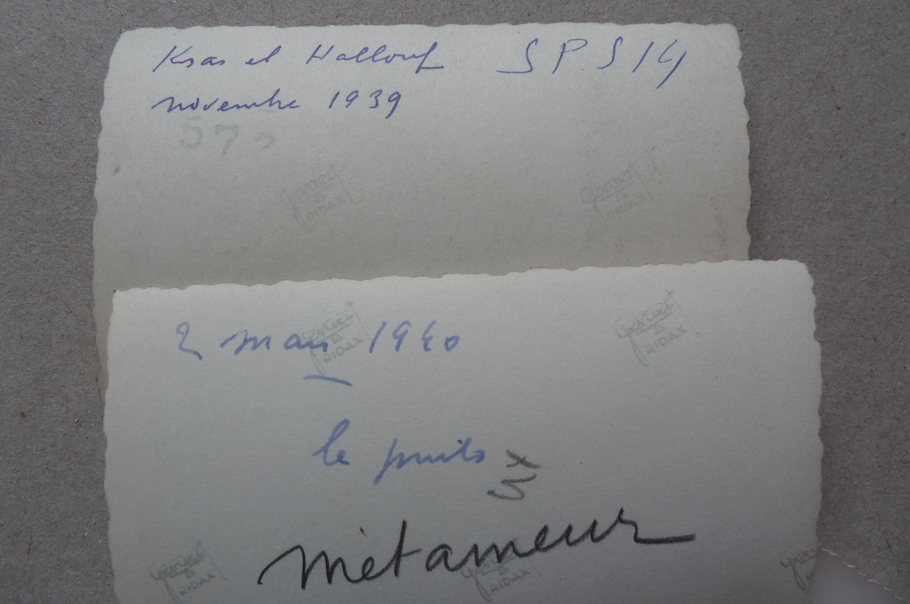 Ksar el Hallouf SPS14
novembre 1939
57
Gevaert
RIDAX
Gevaert
RIDAX
2 mars 1940
Gevaert
RIDAX
Gevaert
RIDAX
le puits
Métameur
Gevaert
RIDAX
Gevaert
RIDAX
Gevaert
RIDAX